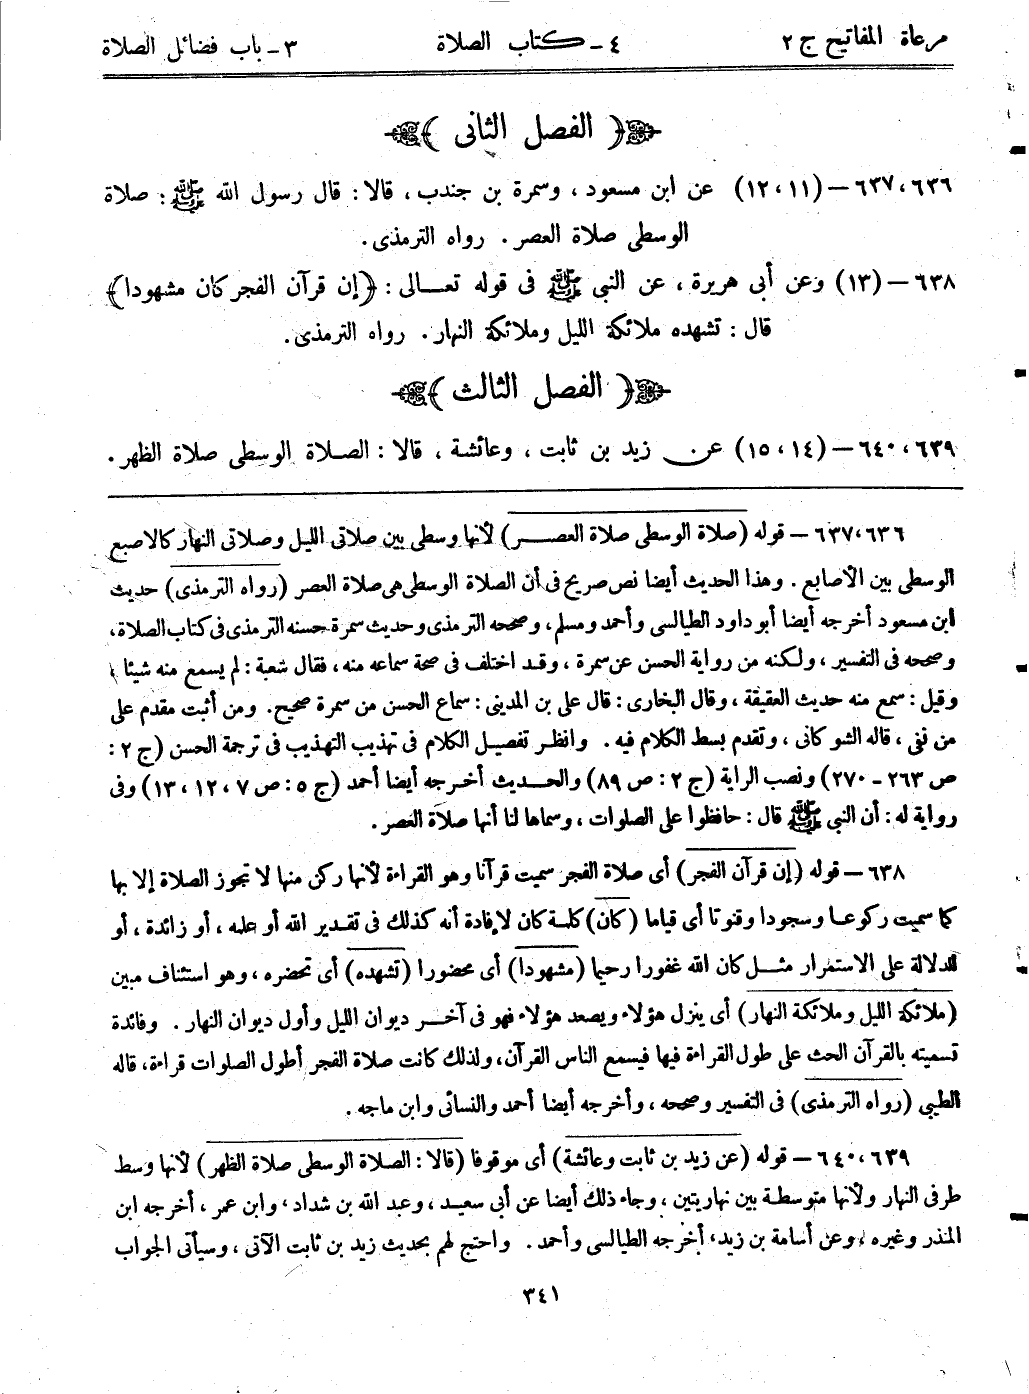 مرعاة المفاتيح ج ٢ ٤ـ كتاب الصلاة ٣ـ باب فضائل الصلاة
﴿ الفصل الثانى ﴾
٦٣٦، ٦٣٧ – (١١، ١٢) عن ابن مسعود، وسمرة بن جندب، قالا: قال رسول الله ﷺ: صلاة
الوسطى صلاة العصر. رواه الترمذى.
٦٣٨ – (١٣) وعن أبى هريرة، عن النبى ﷺ فى قوله تعالى: ﴿إن قرآن الفجر كان مشهودا﴾
قال: تشهده ملائكة الليل وملائكة النهار. رواه الترمذى.
﴿ الفصل الثالث ﴾
٦٣٩، ٦٤٠ – (١٤، ١٥) عن زيد بن ثابت، وعائشة، قالا: الصلاة الوسطى صلاة الظهر.
٦٣٦، ٦٣٧ – قوله (صلاة الوسطى صلاة العصر) لأنها وسطى بين صلاتى الليل وصلاتى النهار كالاصبع
الوسطى بين الأصابع. وهذا الحديث أيضا نص صريح فى أن الصلاة الوسطى هى صلاة العصر (رواه الترمذى) حديث
ابن مسعود أخرجه أيضا أبو داود الطيالسى وأحمد ومسلم، وصححه الترمذى وحديث سمرة حسنه الترمذى فى كتاب الصلاة،
وصححه فى التفسير، ولكنه من رواية الحسن عن سمرة، وقد اختلف فى صحة سماعه منه، فقال شعبة: لم يسمع منه شيئا،
وقيل: سمع منه حديث العقيقة، وقال البخارى: قال على بن المدينى: سماع الحسن من سمرة صحيح. ومن أثبت مقدم على
من نفى، قاله الشوكانى، وتقدم بسط الكلام فيه. وانظر تفصيل الكلام فى تهذيب التهذيب فى ترجمة الحسن (ج ٢:
ص ٢٦٣ – ٢٧٠) ونصب الراية (ج ٢: ص ٨٩) والحديث أخرجه أيضا أحمد (ج ٥: ص ٧، ١٢، ١٣) وفى
رواية له: أن النبى ﷺ قال: حافظوا على الصلوات، وسماها لنا أنها صلاة العصر.
٦٣٨ – قوله (إن قرآن الفجر) أى صلاة الفجر سميت قرآنا وهو القراءة لأنها ركن منها لا تجوز الصلاة إلا بها
كما سميت ركوعا وسجودا وقنوتا أى قياما (كان) كلمة كان لإفادة أنه كذلك فى تقدير الله أو علمه، أو زائدة، أو
للدلالة على الاستمرار مثل كان الله غفورا رحيما (مشهودا) أى محضورا (تشهده) أى تحضره، وهو استئناف مبين
(ملائكة الليل وملائكة النهار) أى ينزل هؤلاء ويصعد هؤلاء فهو فى آخر ديوان الليل وأول ديوان النهار. وفائدة
تسميته بالقرآن الحث على طول القراءة فيها فيسمع الناس القرآن، ولذلك كانت صلاة الفجر أطول الصلوات قراءة، قاله
الطيبى (رواه الترمذى) فى التفسير وصححه، وأخرجه أيضا أحمد والنسائى وابن ماجه.
٦٣٩، ٦٤٠ – قوله (عن زيد بن ثابت وعائشة) أى موقوفا (قالا: الصلاة الوسطى صلاة الظهر) لأنها وسط
طرفى النهار ولأنها متوسطة بين نهاريتين، وجاء ذلك أيضا عن أبى سعيد، وعبد الله بن شداد، وابن عمر، أخرجه ابن
المنذر وغيره، وعن أسامة بن زيد، أخرجه الطيالسى وأحمد. واحتج لهم بحديث زيد بن ثابت الآتى، وسيأتى الجواب
٣٤١